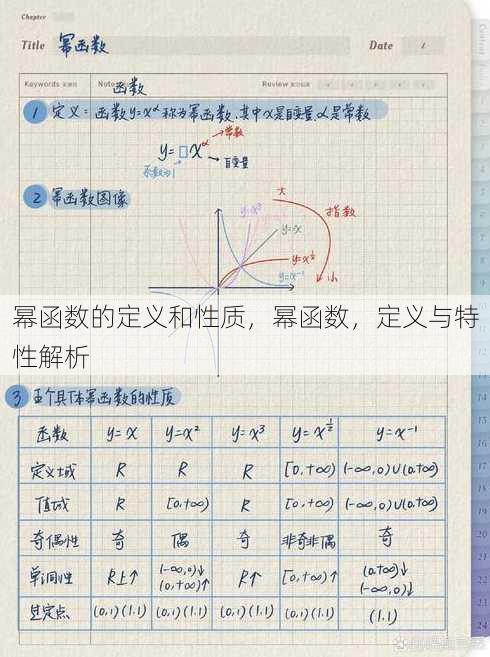 Chapter
Title 幂函数 Date 1
Keywords Notes 函数 Review
1 定义：函数y=x^α称为幂函数.其中x是自变量α是常数
y=□x^α →常数
系数为1 →自变量
2 幂函数图像
大
y=x³ 指数
y=x
y=x^½
y=x⁻¹ 小
幂函数的定义和性质，幂函数，定义与特
性解析
3 五个具体幂函数的性质
函数 y=x y=x² y=x³ y=x^½ y=x⁻¹
定义域 R R R [0,+∞) (-∞,0)∪(0,+∞)
值域 R [0,+∞) R [0,+∞) (-∞,0)∪(0,+∞)
奇偶性 奇 偶 奇 非奇非偶 奇
单调性 R上↑ (-∞,0)↓ R↑ [0,+∞)↑ (0,+∞)↓
(0,+∞)↑ (-∞,0)↓
过定点 (0,1)(1.1) (0,1)(1.1) (0,1)(1.1) (0,1)(1.1) (1.1)